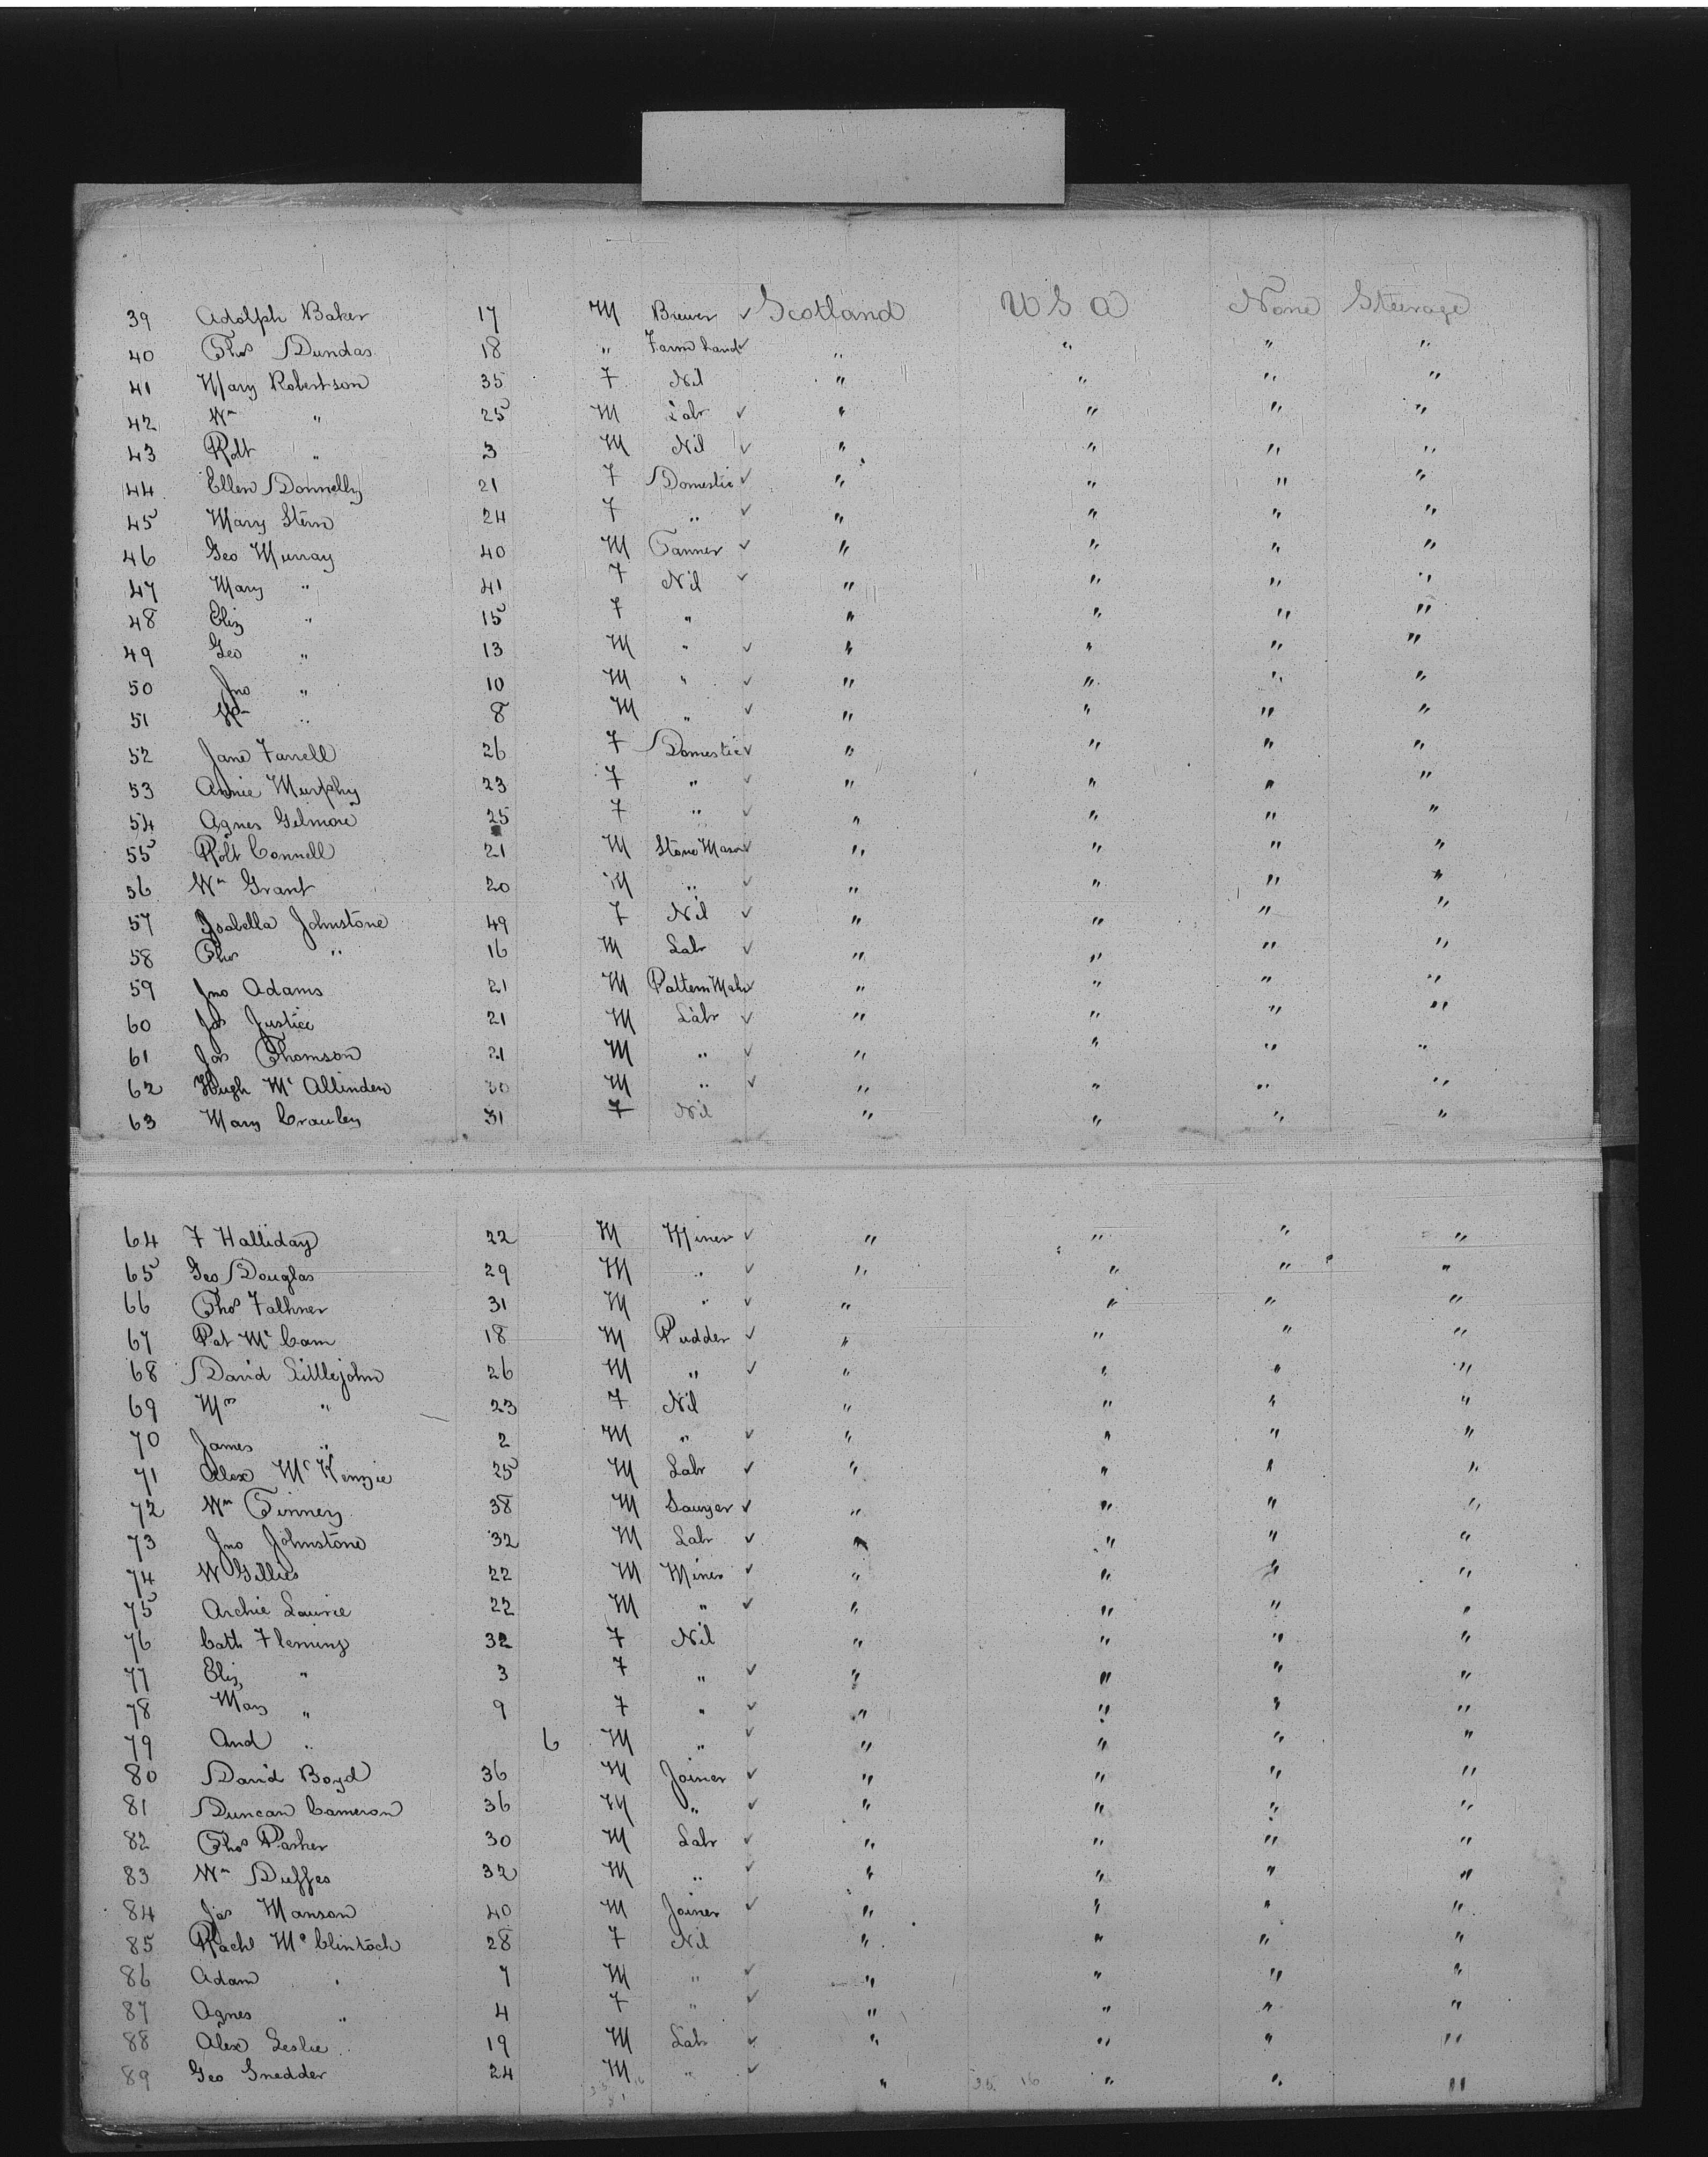 39 Adolph Baker 17 M Brewer ✓ Scotland U S A None Steerage
40 Thos Dundas 18 " Farm hand ✓ " " " "
41 Mary Robertson 35 F Nil " " " "
42 Wm " 25 M Labr ✓ " " " "
43 Robt " 3 M Nil ✓ " " " "
44 Ellen Donnelly 21 F Domestic ✓ " " " "
45 Mary Stern 24 F " ✓ " " " "
46 Geo Murray 40 M Tanner ✓ " " " "
47 Mary " 41 F Nil ✓ " " " "
48 Eliz " 15 F " " " " "
49 Geo " 13 M " ✓ " " " "
50 Jno " 10 M " ✓ " " " "
51 Wm " 8 M " ✓ " " " "
52 Jane Farrell 26 F Domestic ✓ " " " "
53 Annie Murphy 23 F " ✓ " " " "
54 Agnes Gilmore 25 F " ✓ " " " "
55 Robt Connell 21 M Stone Mason ✓ " " " "
56 Wm Grant 20 M " ✓ " " " "
57 Isabella Johnstone 49 F Nil ✓ " " " "
58 Thos " 16 M Labr ✓ " " " "
59 Jno Adams 21 M Pattern Makr ✓ " " " "
60 Jas Justice 21 M Labr ✓ " " " "
61 Jas Thomson 21 M " ✓ " " " "
62 Hugh Mc Allinden 30 M " ✓ " " " "
63 Mary Crawley 31 F Nil " " " "
64 F Halliday 22 M Miner ✓ " " " "
65 Geo Douglas 29 M " ✓ " " " "
66 Thos Falkner 31 M " ✓ " " " "
67 Pat Mc Cam 18 M Pudder ✓ " " " "
68 David Littlejohn 26 M " ✓ " " " "
69 Mrs " 23 F Nil " " " "
70 James " 2 M " ✓ " " " "
71 Alex Mc Kenzie 25 M Labr ✓ " " " "
72 Wm Finney 38 M Sawyer ✓ " " " "
73 Jno Johnstone 32 M Labr ✓ " " " "
74 W Gillies 22 M Miner ✓ " " " "
75 Archie Laurie 22 M " ✓ " " " "
76 Cath Fleming 32 F Nil " " " "
77 Eliz " 3 F " ✓ " " " "
78 Mary " 9 F " ✓ " " " "
79 And " 6 M " ✓ " " " "
80 David Boyd 36 M Joiner ✓ " " " "
81 Duncan Cameron 36 M " ✓ " " " "
82 Thos Parker 30 M Labr ✓ " " " "
83 Wm Duffes 32 M " ✓ " " " "
84 Jas Manson 40 M Joiner ✓ " " " "
85 Rachl Mc Clintoch 28 F Nil " " " "
86 Adam " 7 M " ✓ " " " "
87 Agnes " 4 F " ✓ " " " "
88 Alex Leslie 19 M Labr ✓ " " " "
89 Geo Snedder 24 M " ✓ " " " "
35 16